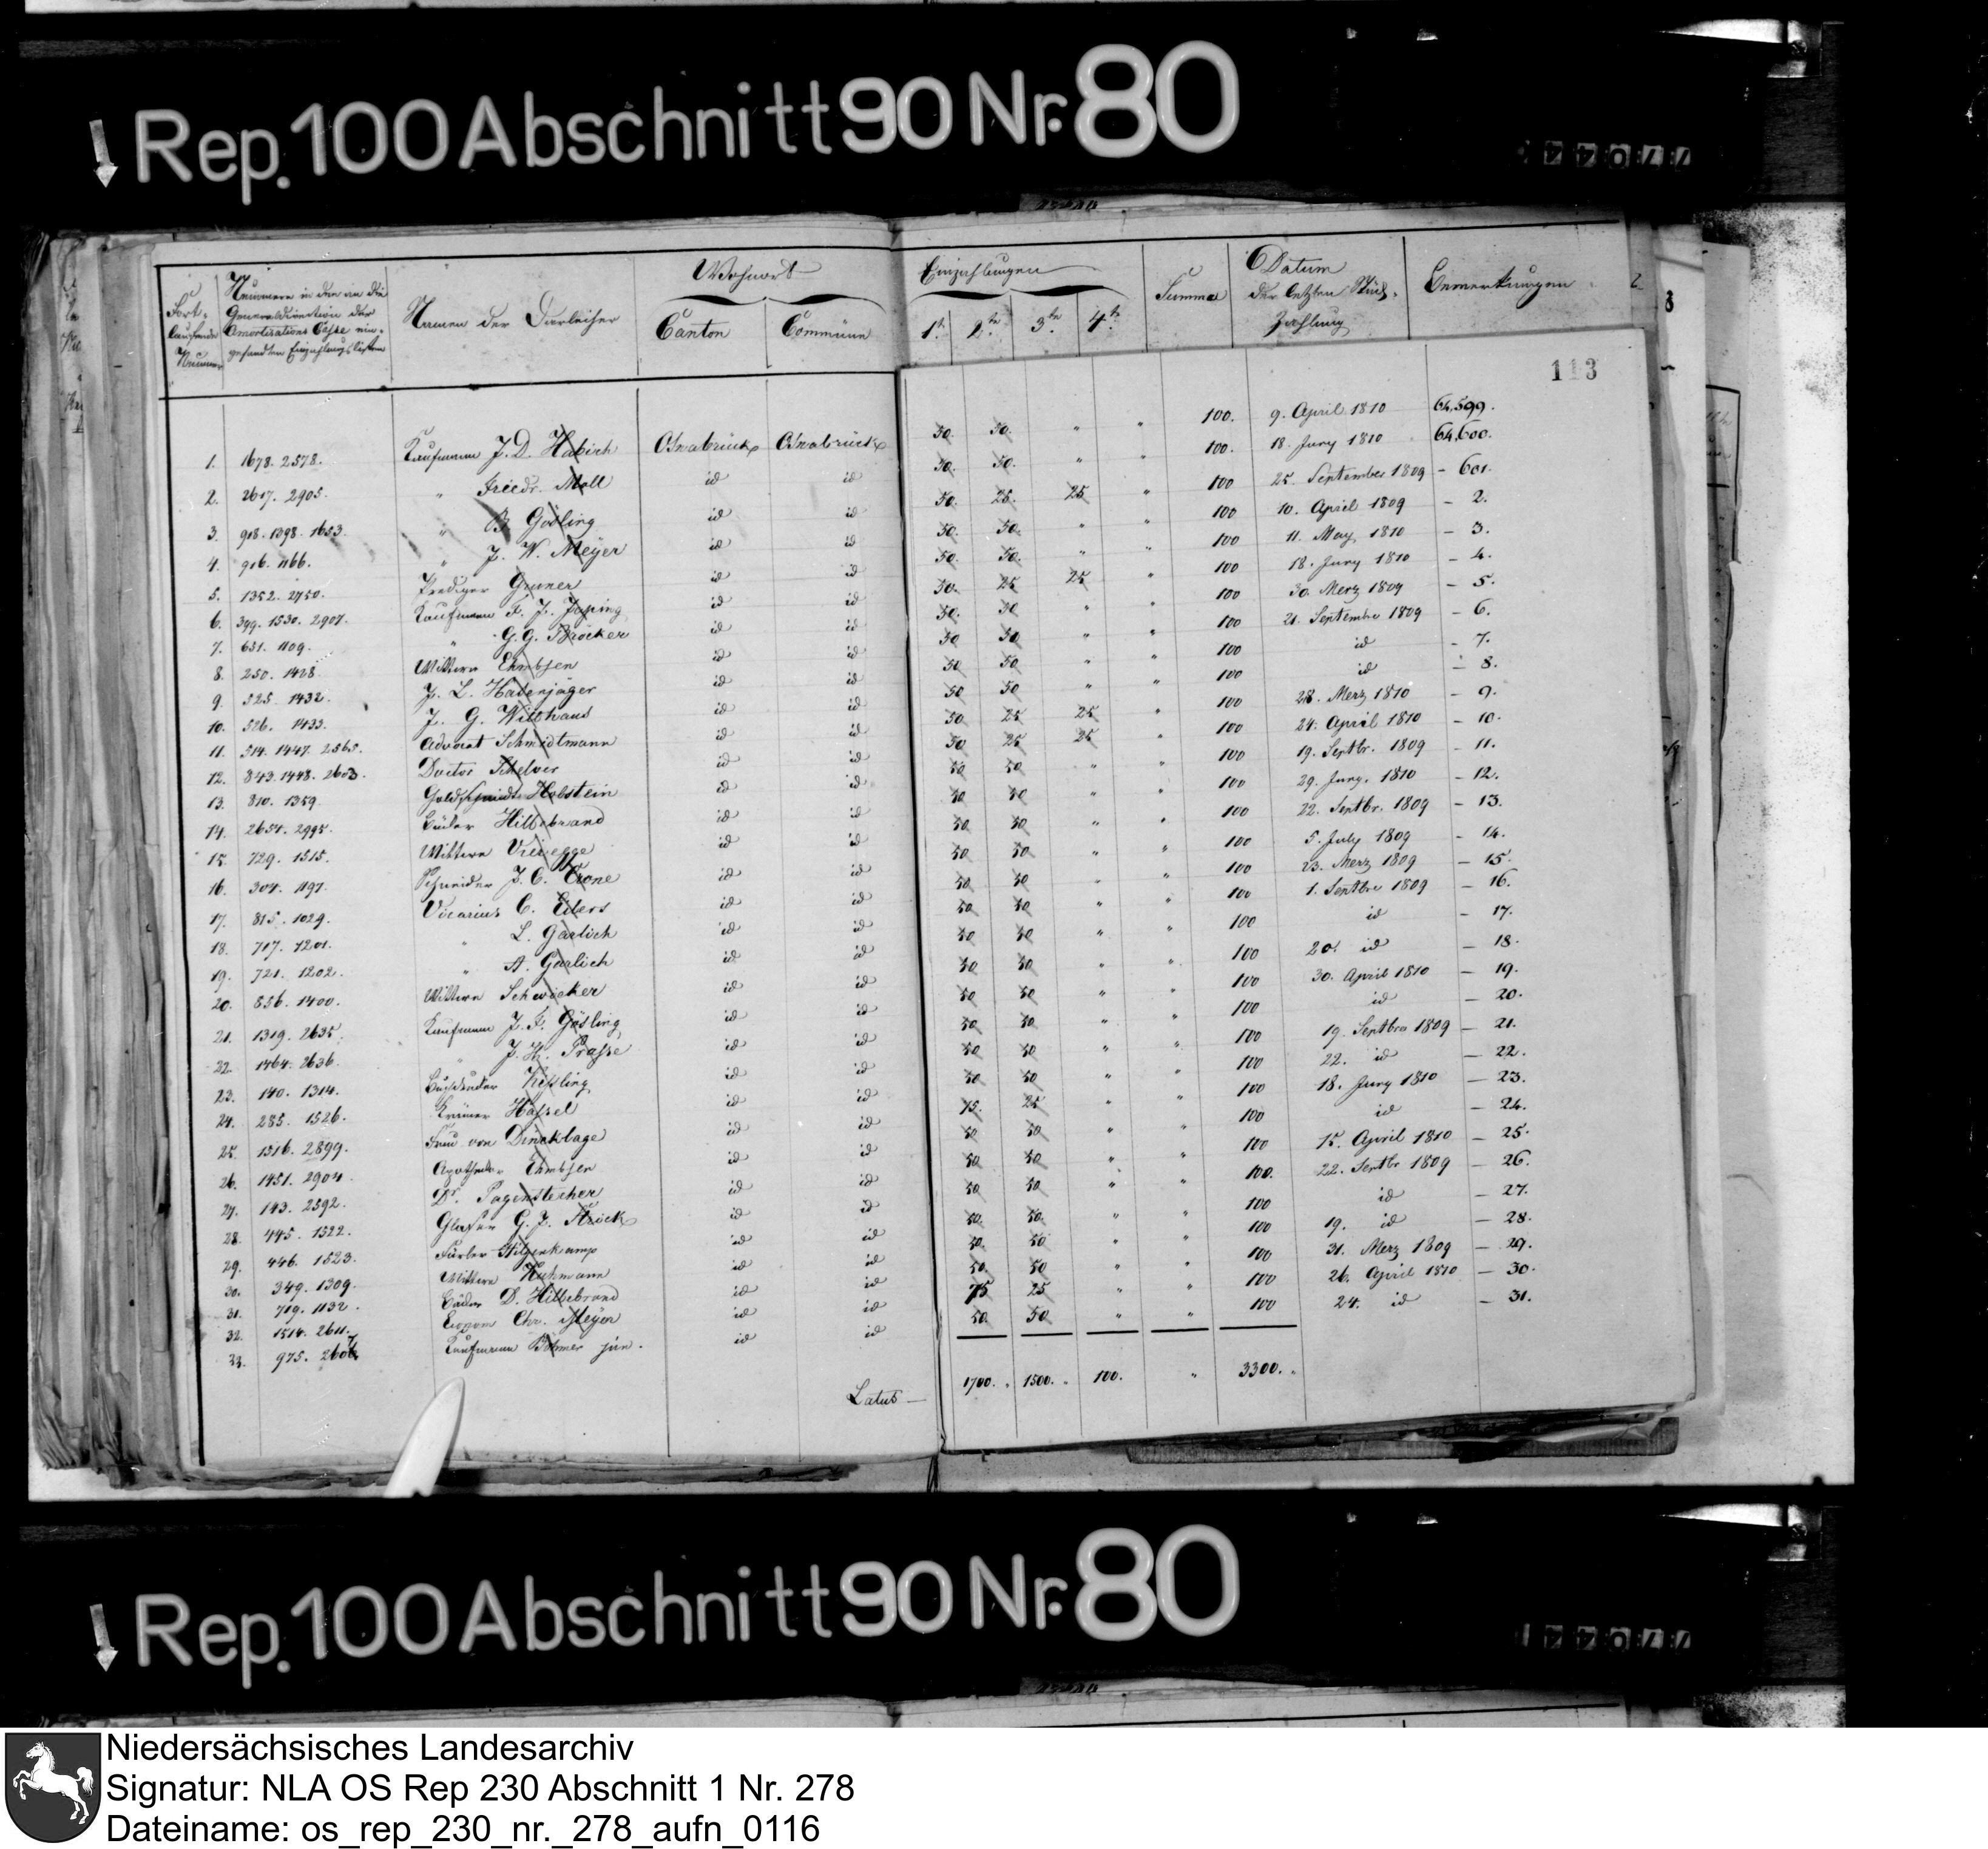 Rep. 100 Abschnitt 90 Nr. 80
77044
Fort-laufende Nummer
Nummern in den an die Generaldirection der Amortisations Casse ein-gesandten Einzahlungslisten
Namen der Darleiher
Wohnort
Canton
Commüne
Einzahlungen
1te
2te
3te
4te
Summa
Datum der letzten Stück-Zahlung
Bemerkungen
113
1. 1678. 2578. Kaufmann J. D. Habich Osnabrück Osnabrück 50. 50. " " 100. 9. April 1810 64,599.
2. 2617. 2905. " Friedr. Moll id id 50. 50. " " 100. 18. Juny 1810 64,600.
3. 918. 1398. 1653. " B. Gösling id id 50. 25. 25 " 100 25. September 1809 - 601.
4. 916. 1166. " J. W. Meyer id id 50. 50. " " 100 10. April 1809 - 2.
5. 1352. 2750. Prediger Gruner id id 50. 50. " " 100 11. May 1810 - 3.
6. 399. 1530. 2907. Kaufmann F. J. Japing id id 50. 25 25 " 100 18. Juny 1810 - 4.
7. 631. 1109. " G. G. Bröcker id id 50. 50 " " 100 30. Merz 1809 - 5.
8. 250. 1428. Wittwe Ehmbsen id id 50 50 " " 100 21. Septembr 1809 - 6.
9. 525. 1432. J. L. Hasenjäger id id 50 50 " " 100 id - 7.
10. 526. 1433. J. G. Witthaus id id 50 50 " " 100 id - 8.
11. 514. 1447. 2565. Advocat Schmidtmann id id 50 25 25 " 100 28. Merz 1810 - 9.
12. 843. 1448. 2603. Doctor Schelver id id 50 25 25 " 100 24. April 1810 - 10.
13. 810. 1359. Goldschmidt Holstein id id 50 50 " " 100 19. Septbr. 1809 - 11.
14. 2654. 2995. Bäcker Hillebrand id id 50 50 " " 100 29. Juny. 1810 - 12.
15. 729. 1515. Wittwe Vieregge id id 50 50 " " 100 22. Septbr. 1809 - 13.
16. 304. 1197. Schneider J. C. Crone id id 50 50 " " 100 5. July 1809 - 14.
17. 815. 1029. Vicarius C. Eilers id id 50 50 " " 100 23. Merz 1809 - 15.
18. 717. 1201. " L. Garlich id id 50 50 " " 100 1. Septbr 1809 - 16.
19. 721. 1202. " A. Garlich id id 50 50 " " 100 id - 17.
20. 856. 1400. Wittwe Schwicker id id 50 50 " " 100 20. id - 18.
21. 1319. 2635. Kaufmann J. F. Gösling id id 50 50 " " 100 30. April 1810 - 19.
22. 1464. 2636. " J. H. Prasse id id 50 50 " " 100 id - 20.
23. 140. 1314. Buchbinder Kissling id id 50 50 " " 100 19. Septbr 1809 - 21.
24. 285. 1526. Krämer Hassel id id 50 50 " " 100 22. id - 22.
25. 1316. 2899. Frau von Dincklage id id 75. 25 " " 100 18. Juny 1810 - 23.
26. 1451. 2904. Apotheker Ehmbsen id id 50 50 " " 100 id - 24.
27. 143. 2592. Dr. Pagenstecher id id 50 50 " " 100 15. April 1810 - 25.
28. 445. 1522. Glaser G. J. Strick id id 50 50 " " 100. 22. Septbr 1809 - 26.
29. 446. 1523. Färber Hilgenkamp id id 50. 50. " " 100 id - 27.
30. 349. 1309. Wittwe Kuhmann id id 50. 50 " " 100 19. id - 28.
31. 719. 1132. Bäcker D. Hillebrand id id 50. 50 " " 100 31. Merz 1809 - 29.
32. 1514. 2611. Chr. Meyer id id 75 25 " " 100 26. April 1810 - 30.
33. 975. Kaufmann Böhmer jun. id id 50 50 " " 100 24. id - 31.
Latus — 1700. " 1500. " 100. " 3300. "
Rep. 100 Abschnitt 90 Nr. 80
77044
Niedersächsisches Landesarchiv
Signatur: NLA OS Rep 230 Abschnitt 1 Nr. 278
Dateiname: os_rep_230_nr._278_aufn_0116